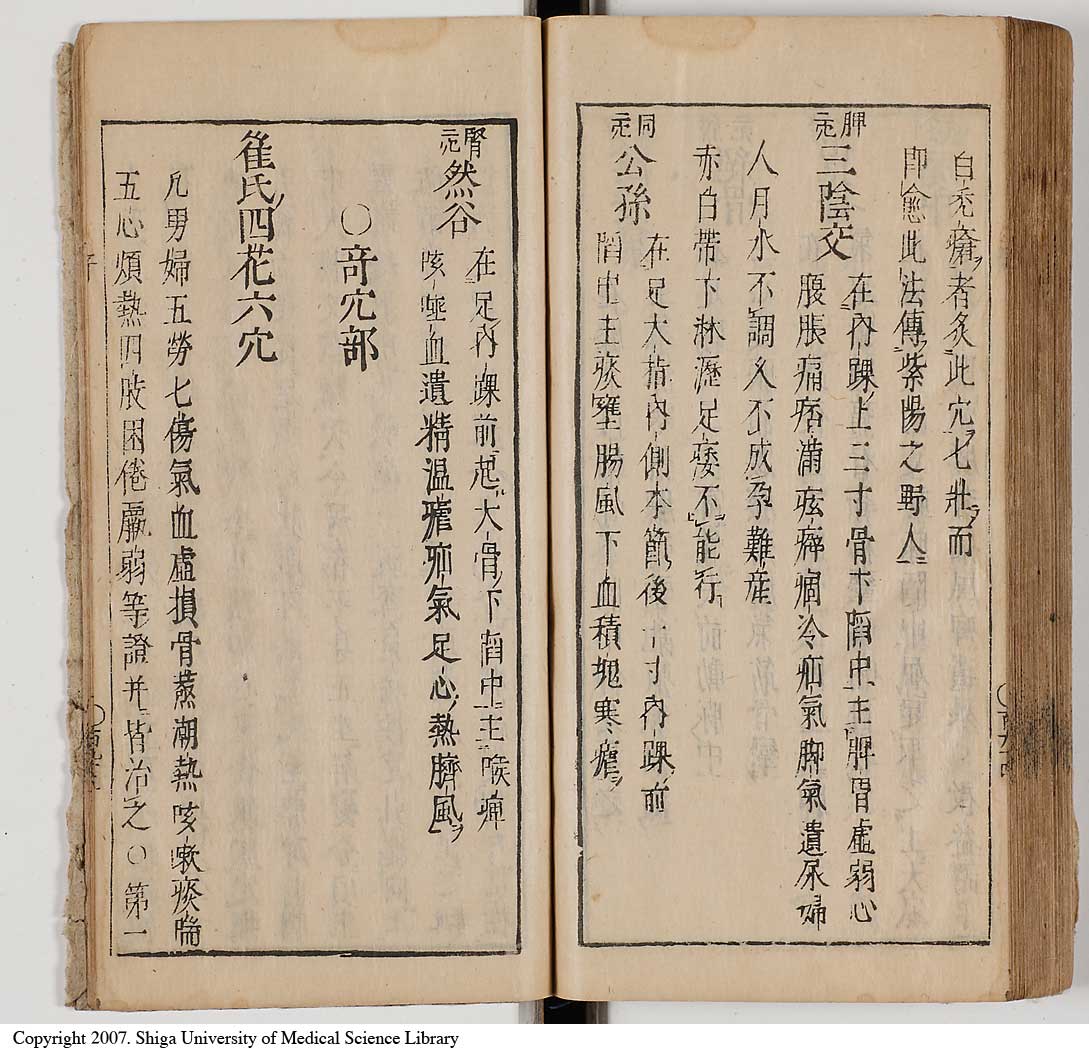 白禿瘡者灸此穴七壯而
即愈此法傳紫陽之野人
脾二 三陰交 在內踝上三寸骨下陷中主脾胃虛弱心
腹脹痛痞滿痃癖痼冷疝氣脚氣遺尿婦
人月水不調久不成孕難産
赤白帶下淋瀝足痿不能行
同二 公孫 在足大指內側本節後一寸內踝前
陷中主痰壅腸風下血積塊寒瘧
腎二 然谷 在足內踝前起大骨下陷中主喉痺
咳唾血遺精温瘧疝氣足心熱臍風
○竒穴部
崔氏四花六穴
凡男婦五勞七傷氣血虛損骨蒸潮熱咳嗽痰喘
五心煩熱四肢困倦羸弱等證并皆治之○第一
Copyright 2007. Shiga University of Medical Science Library